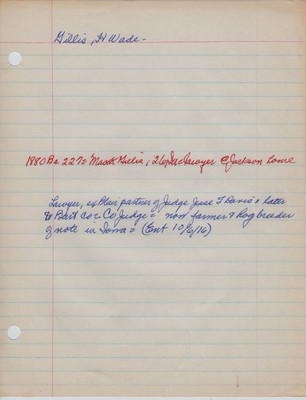 Gillis, H Wade -
1880 Ba 227= Mack Gillis, 26, Lawyer @ Jackson Lowe
Lawyer, ex law partner of Judge Jesse T Davis & latter
Co Judge = now farmer & Hog breeder
of note in Iowa = (Ent 10/6/16)